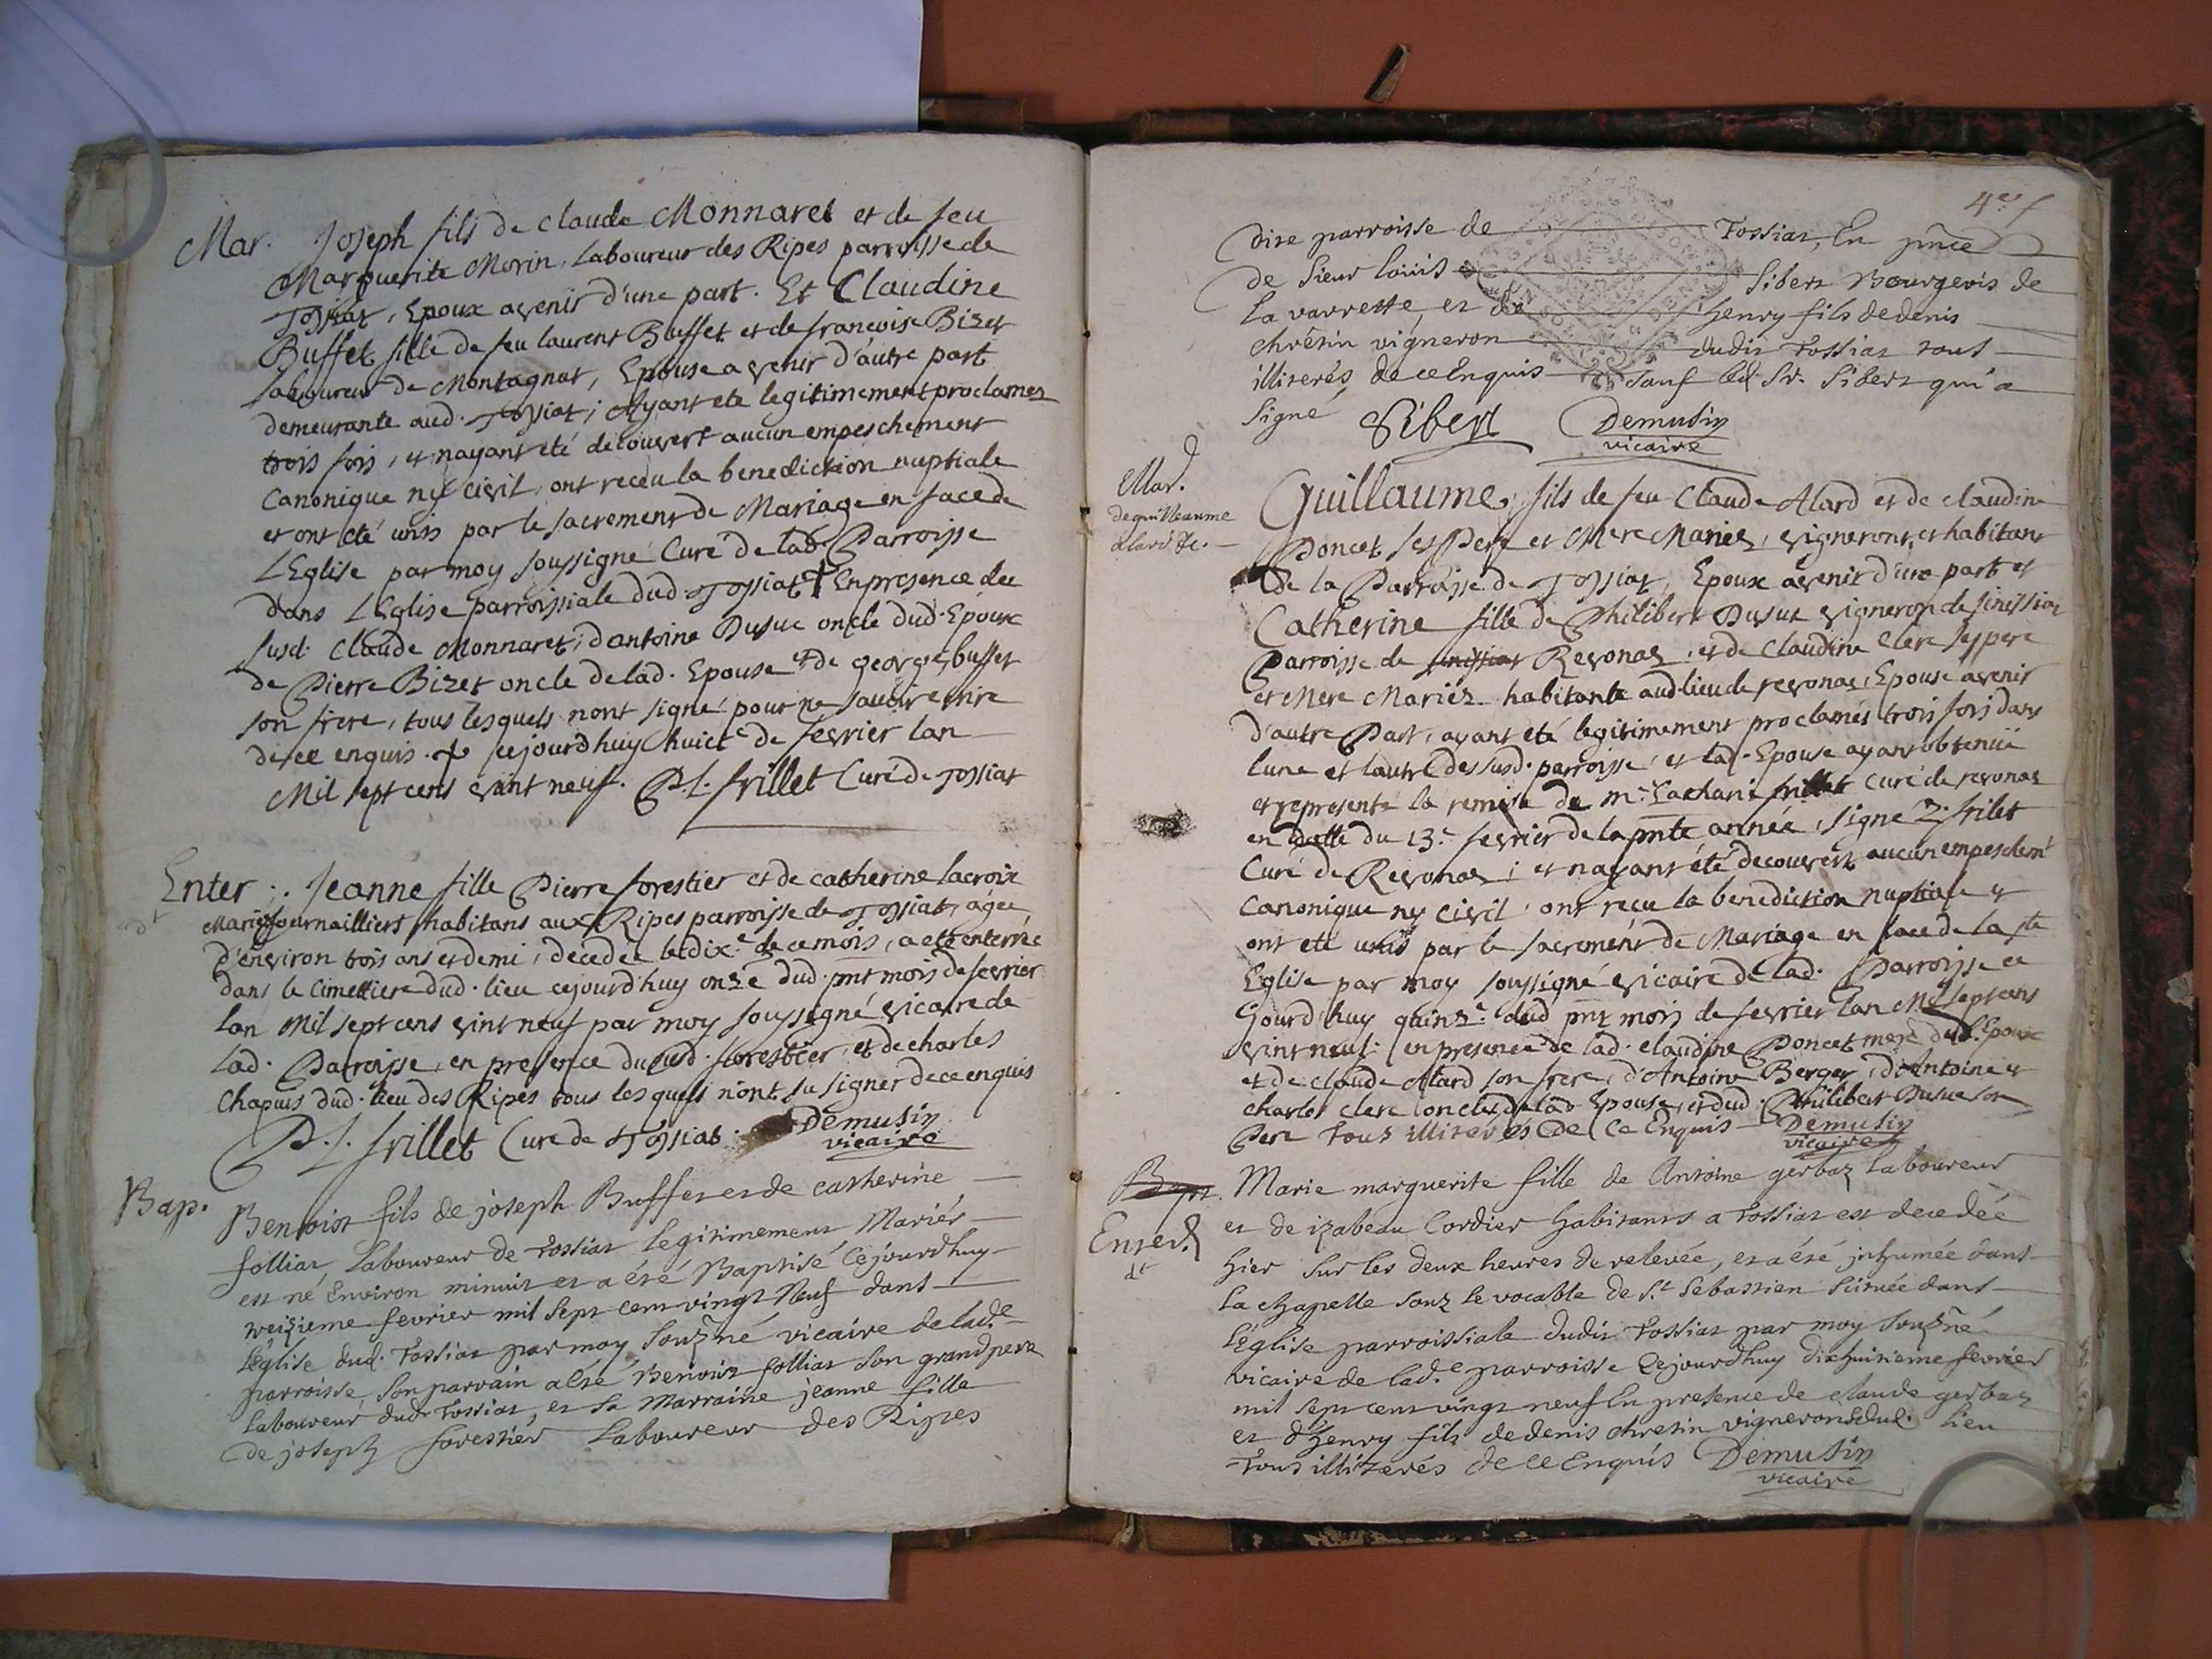 Mar. Joseph fils de claude Monnaret et de feu
Marguerite Morin, Laboureur des Ripes parroisse de
Tossiat, Epoux avenir d'une part. Et Claudine
Buffet fille de feu laurent Buffet et de francoise Bizet
laboureur de Montagnat, Epouse avenir d'autre part
demeurante aud. Tossiat; Ayant ete legitimement proclamez
trois fois, et nayant eté decouvert aucun empeschement
Canonique ny civil, ont receu la benediction nuptiale
et ont eté unis par le sacrement de Mariage en face de
LEglise par moy soussigné Curé de lad. Parroisse
dans LEglise parroissiale dud. Tossiat + En presence du
susd. Claude Monnaret, d'antoine Dusuc oncle dud. Epoux
de Pierre Bizet oncle de lad. Epouse et de george buffet
son frere, tous lesquels nont signé pour ne savoir ecrire
de ce enquis. + cejourdhuy huict.e de fevrier lan
Mil sept cents vint neuf. P. f. frillet Curé de Tossiat
Enter. Jeanne fille Pierre forestier et de catherine lacroix
Mariés Journailliers habitans aux Ripes parroisse de Tossiat, agée
d'environ trois ans et demi, decedée le dix.e de ce mois, a eté enterrée
dans le Cimettiere dud. lieu cejourd'huy onze dud. pnt mois de fevrier
lan Mil sept cens vint neuf par moy soussigné vicaire de
lad. Parroisse, en presence du susd. forestier, et de charles
Chapuis dud. lieu des Ripes tous lesquels n'ont su signer de ce enquis
P. f. frillet Curé de Tossiat. Demusin
vicaire
Bap. Benoist fils de joseph Buffet et de catherine
folliat, Laboureur de Tossiat legitimement Mariés
est né Environ minuit et a été Baptisé Cejourdhuy
treizieme fevrier mil sept cent vingt Neuf dans
l'Eglise dud. Tossiat par moy souzné vicaire de lad.e
parroisse, son parrain a été Benoist folliat son grand pere
laboureur dudt Tossiat, et sa Marraine jeanne fille
de joseph forestier Laboureur des Ripes
4e f
dite parroisse de Tossiat, En pnce
de sieur louis Sibert Bourgeois de
la varrette, et de henry fils de denis
chrétin vigneron dudit Tossiat tous
illiterés, de ce Enquis sauf led. Sr. Sibert qui a
signé Sibert Demusin
vicaire
Mar.
de guilleaume
alard &c.
Guillaume, fils de feu Claude Alard et de claudine
Poncet ses Pere et Mere Mariez, vignerons, et habitans
de la Parroisse de Tossiat, Epoux avenir d'une part et
Catherine fille de Philibert Dusuc vigneron de sinissiat
Parroisse de sinissiat Revonas, et de Claudine Clerc ses pere
et Mere Mariéz habitante aud. lieu de revonas, Epouse avenir
d'autre Part, ayant eté legitimement proclamés trois fois dans
lune et lautre des susd. parroisse, et lad. Epouse ayant obtenüe
et representé la remise de mre Zacharie frillet Curé de revonas
en datte du 13.e fevrier de la pnte année, signé Z. frilet
Curé de Revonas; et nayant été decouvert aucun empeschemt
canonique ny civil, ont recu la benediction nuptiale et
ont eté unis par le sacrement de Mariage en face de la ste
Eglise par moy soussigné vicaire de lad. Parroisse ce
jourd'huy quinz.e dud pnt mois de fevrier lan Mil sept cens
vint neuf. en presence de lad. claudine Poncet mere dud. Epoux
et de claude Alard son frere, d'Antoine Berger, d'Antoine et
charles clerc oncles de lad Epouse, et dud. Philibert Dusuc son
Pere Tous illiterés de Ce Enquis Demusin
vicaire
Bapt. Marie marguerite fille de Antoine gerbaz laboureur
Enterr. et de izabeau Cordier habitants a Tossiat est decedée
hier sur les deux heures de relevée, et a été inhumée dans
la chapelle souz le vocable de St Sebastien scituée dans
l'Eglise parroissiale dudit Tossiat par moy souzné
vicaire de lad.e parroisse Cejourdhuy dixhuitieme fevrier
mil sept cent vingt neuf En presence de claude gerbaz
et d'henry fils de denis chretin vignerons dud. lieu
Tous illiterés de ce Enquis Demusin
vicaire